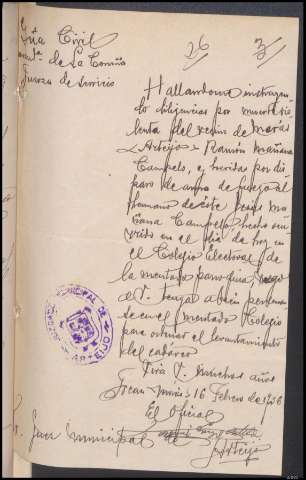 26
3
Gria Civil
Comª de La Coruña
Fuerza de servicio
Hallandome instruyen-
do diligencias por muerte vio-
lenta del vecino de Morás
Arteijo Ramón Mañana
Campelo, y heridas por dis-
paro de arma de fuego al
hermano de este Ma-
ñana Campelo, hecho ocu-
rrido en el día de hoy en
el Colegio Electoral de
la mentada parroquia, ruego
a V. tenga a bien personar-
se en el mentado Colegio
para ordenar el levantamiento
del cadaver
Viva V. muchos años
Morás 16 Febrero de 1936
El Oficial
Sr. Juez Municipal de
Arteijo
JUZGADO MUNICIPAL DE
ARTEIJO